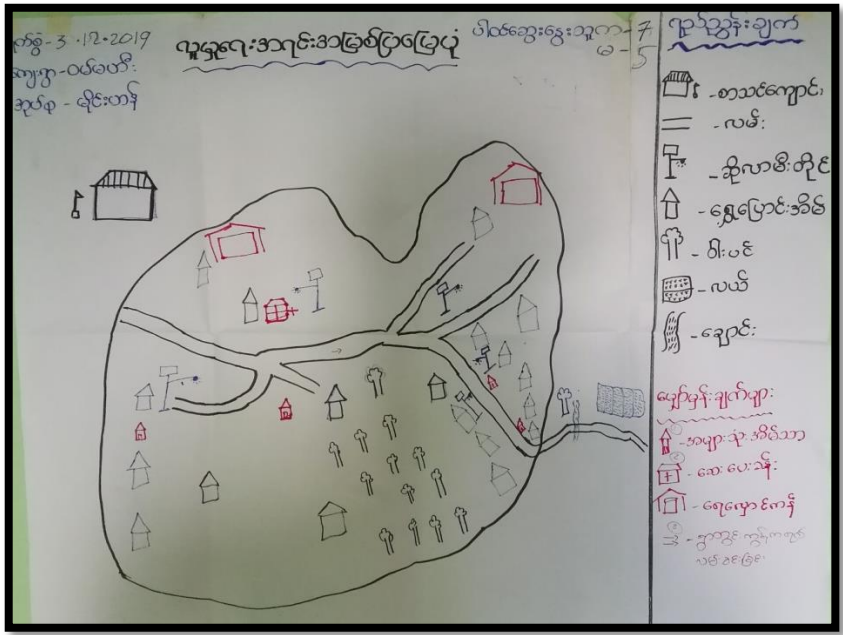 ရက်စွဲ - 3.12.2019
ကျေးရွာ - ဝမ်မတီး
အုပ်စု - မိုင်းဟန်
လူမှုရေးအရင်းအမြစ်ပြမြေပုံ
ပါဝင်ဆွေးနွေးသူ က - 7
မ - 5
ရည်ညွှန်းချက်
- စာသင်ကျောင်း
- လမ်း
- ဆိုလာမီးတိုင်
- ရွှေ့ပြောင်းအိမ်
- ဝါးပင်
- လယ်
- ချောင်း
မျှော်မှန်းချက်များ
- အများသုံးအိမ်သာ
- ဆေးပေးခန်း
- ရေလှောင်ကန်
- ရွာတွင်း ကွန်ကရစ်
လမ်းခင်းခြင်း